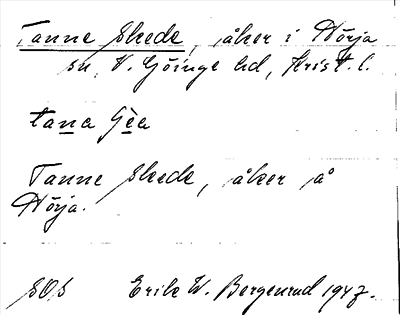 Tanne Skede, åker i Nörja
sn, V. Göinge hd, Krist. l.
tana
Tanne Skede, åker på
Nörja.
SOS Erik W. Bergenrud 1947.